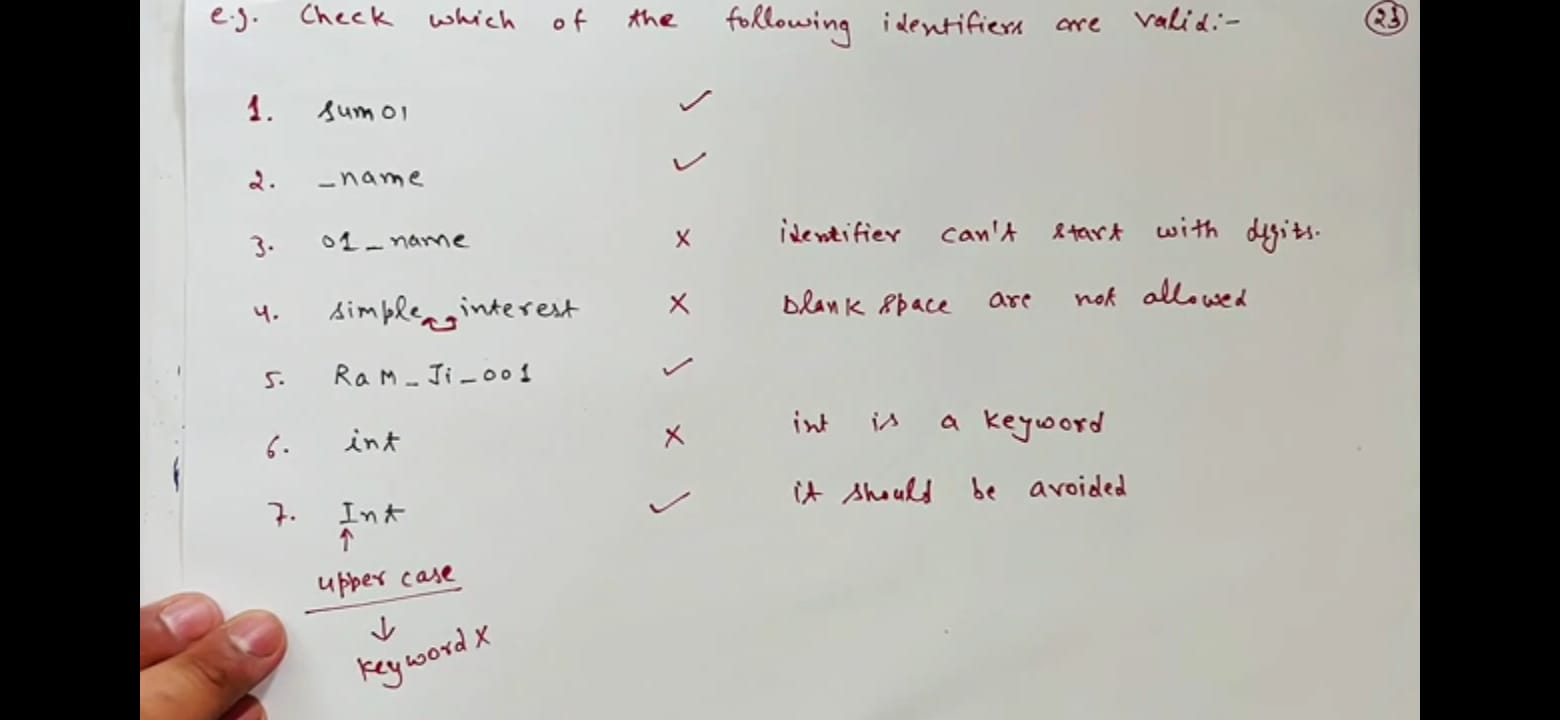 e.g. Check which of the following identifiers are valid:- 23
1. sum01 ✓
2. _name ✓
3. 01_name × identifier can't start with digits.
4. simple interest × blank space are not allowed
5. RaM_Ji_001 ✓
6. int × int is a keyword
7. Int ✓ it should be avoided
↑
upper case
↓
keyword ×